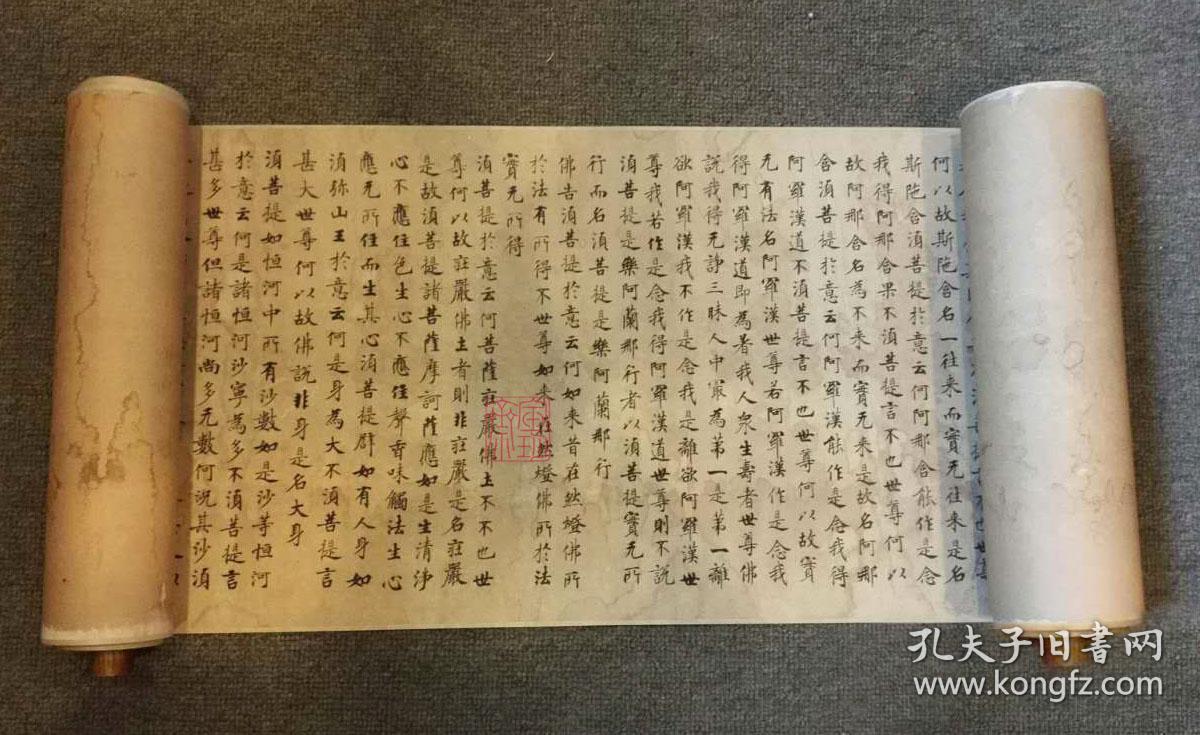 何以故斯陁含名一往来而實无往来是名
斯陁含湏菩提於意云何阿那含能作是念
我得阿那含果不湏菩提言不也世尊何以
故阿那含名為不来而實无来是故名阿那
含湏菩提於意云何阿羅漢能作是念我得
阿羅漢道不湏菩提言不也世尊何以故實
无有法名阿羅漢世尊若阿羅漢作是念我
得阿羅漢道即為著我人衆生壽者世尊佛
說我得无諍三昧人中㝡為苐一是苐一離
欲阿羅漢我不作是念我是離欲阿羅漢世
尊我若作是念我得阿羅漢道世尊則不說
湏菩提是樂阿蘭那行者以湏菩提實无所
行而名湏菩提是樂阿蘭那行
佛告湏菩提於意云何如来昔在然燈佛所
於法有所得不世尊如来在然燈佛所於法
實无所得
湏菩提於意云何菩薩莊嚴佛土不不也世
尊何以故莊嚴佛土者則非莊嚴是名莊嚴
是故湏菩提諸菩薩摩訶薩應如是生清浄
心不應住色生心不應住聲香味觸法生心
應无所住而生其心湏菩提辟如有人身如
湏弥山王於意云何是身為大不湏菩提言
甚大世尊何以故佛說非身是名大身
湏菩提如恒河中所有沙數如是沙等恒河
於意云何是諸恒河沙寧為多不湏菩提言
甚多世尊但諸恒河尚多无數何況其沙湏
孔夫子旧書网
www.kongfz.com